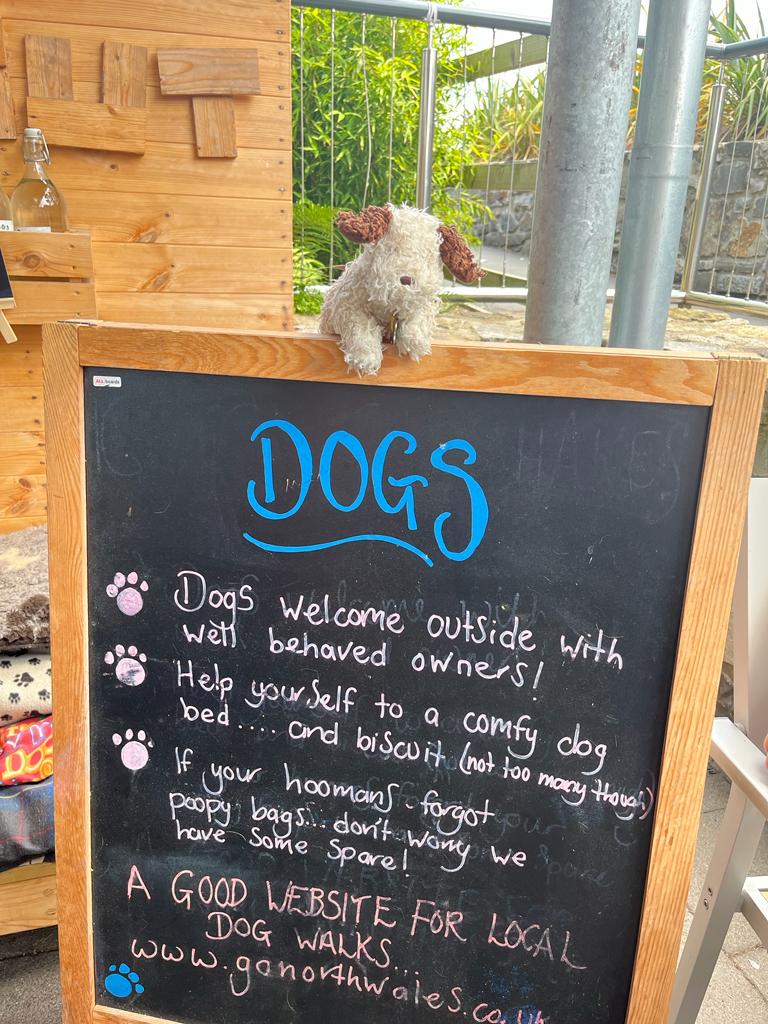 ALL boards
DOGS
Dogs welcome outside with
well behaved owners!
Help yourself to a comfy dog
bed.... and biscuit (not too many though)
If your hoomans forgot
poopy bags... don't worry we
have some spare!
A GOOD WEBSITE FOR LOCAL
DOG WALKS...
www.gonorthwales.co.uk